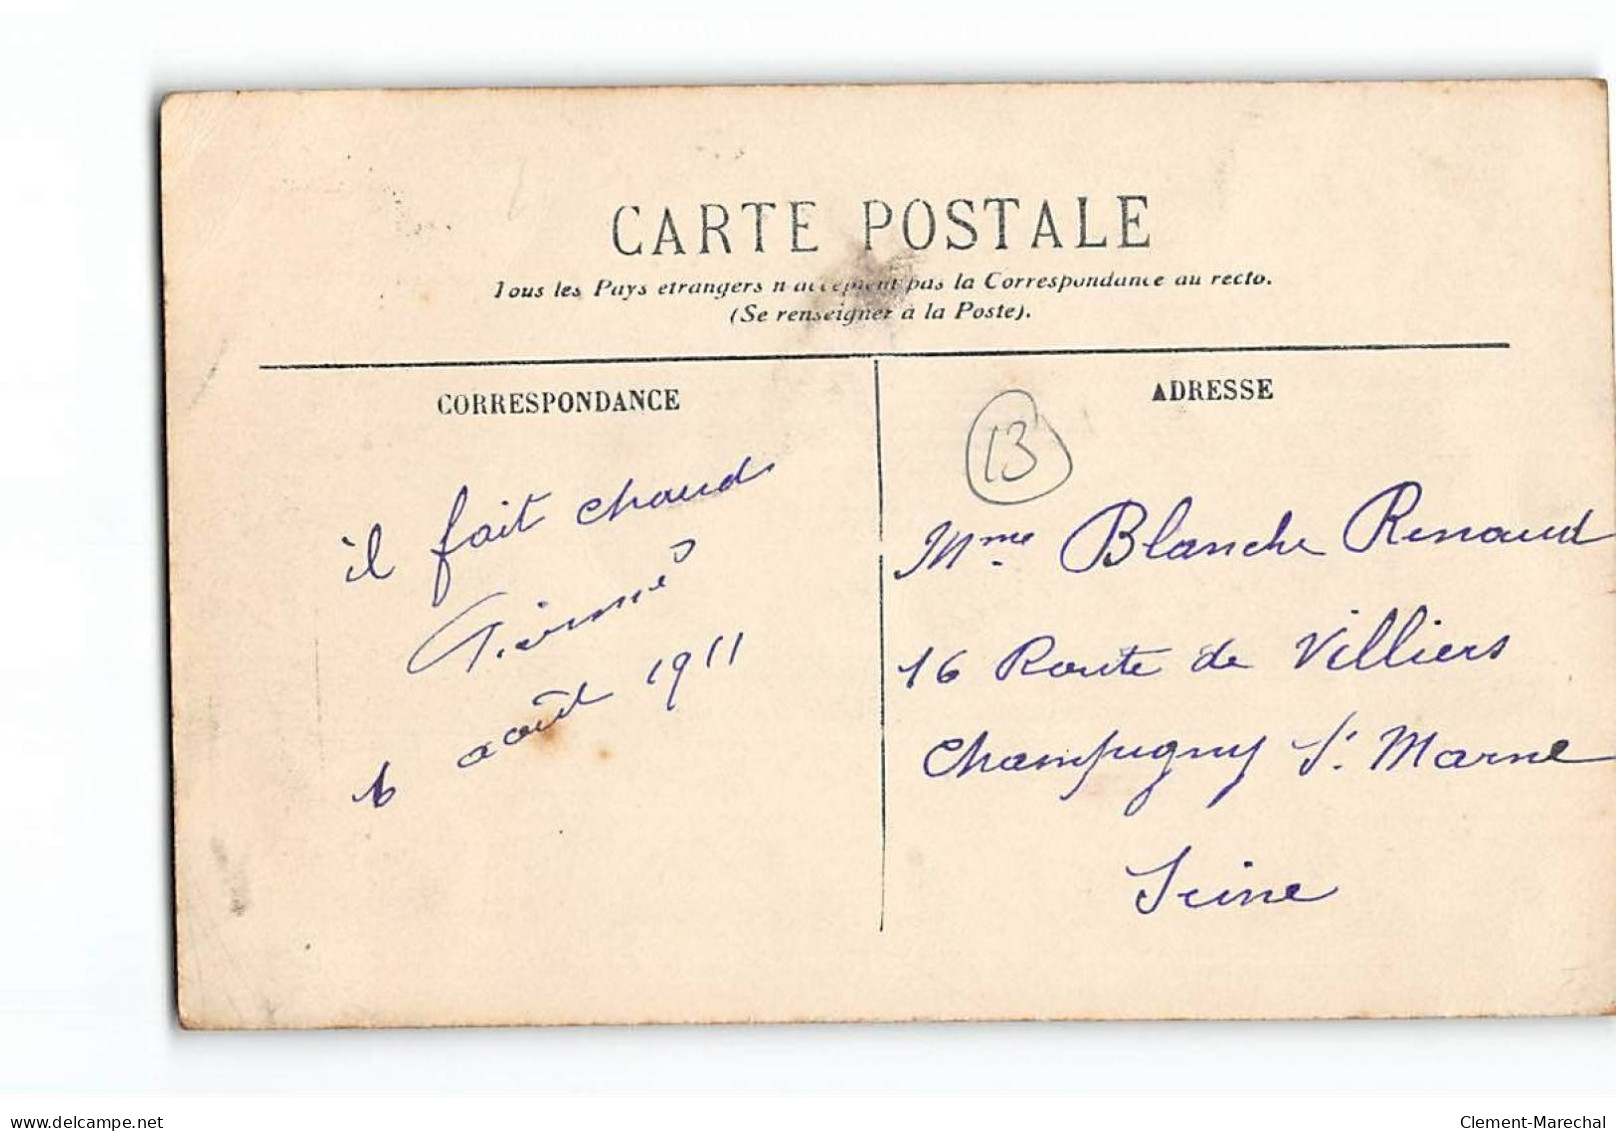 CARTE POSTALE
Tous les Pays etrangers n'acceptent pas la Correspondance au recto.
(Se renseigner à la Poste).
CORRESPONDANCE
il fait chaud
6 août 1911
ADRESSE
13
Mme Blanche Renaud
16 Route de Villiers
Champigny s/ Marne
Seine
delcampe.net
Clement-Marechal